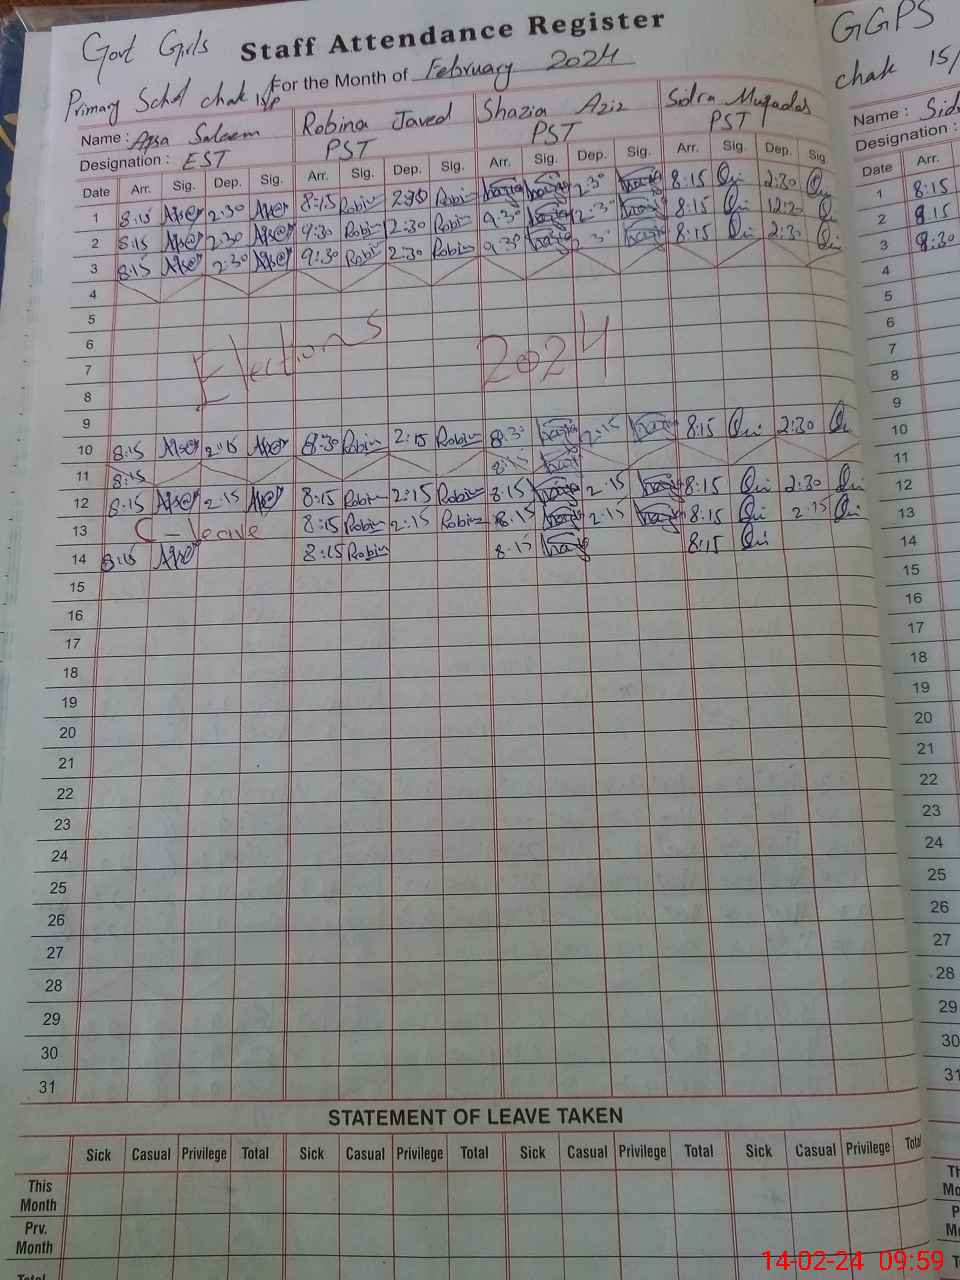 Govt Girls Staff Attendance Register
Primary School chak 15/P For the Month of February 2024
Name : Aqsa Saleem Robina Javed Shazia Aziz Sidra Muqadas
Designation : EST PST PST PST
Date Arr. Sig. Dep. Sig. Arr. Sig. Dep. Sig. Arr. Sig. Dep. Sig. Arr. Sig. Dep. Sig.
1 8:15 2:30 8:15 Robin 2:30 Robin 2:30 8:15 2:30
2 8:15 2:30 9:30 Robin 2:30 Robin 9:30 2:30 8:15 12:30
3 8:15 2:30 9:30 Robin 2:30 Robin 9:30 2:30 8:15 2:30
4
5
6
7 Elections 2024
8
9
10 8:15 2:15 8:30 Robin 2:15 Robin 8:30 2:15 8:15 2:30
11 8:15 8:15
12 8:15 2:15 8:15 Robin 2:15 Robin 8:15 2:15 8:15 2:30
13 C-leave 8:15 Robin 2:15 Robin 8:15 2:15 8:15 2:15
14 8:15 8:15 Robin 8:15 8:15
15
16
17
18
19
20
21
22
23
24
25
26
27
28
29
30
31
STATEMENT OF LEAVE TAKEN
Sick Casual Privilege Total Sick Casual Privilege Total Sick Casual Privilege Total Sick Casual Privilege Total
This Month
Prv. Month
Total
GGPS
chak 15/
Name : Sid
Designation :
Date Arr.
1 8:15
2 9:15
3 9:30
4
5
6
7
8
9
10
11
12
13
14
15
16
17
18
19
20
21
22
23
24
25
26
27
28
29
30
31
14-02-24 09:59